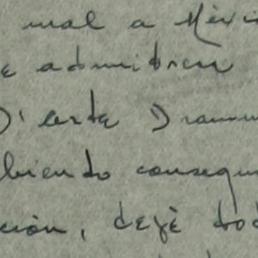 mal a Méxi
e admitiesen
D'arte Dramm
biendo consegui
ción, dejé tod